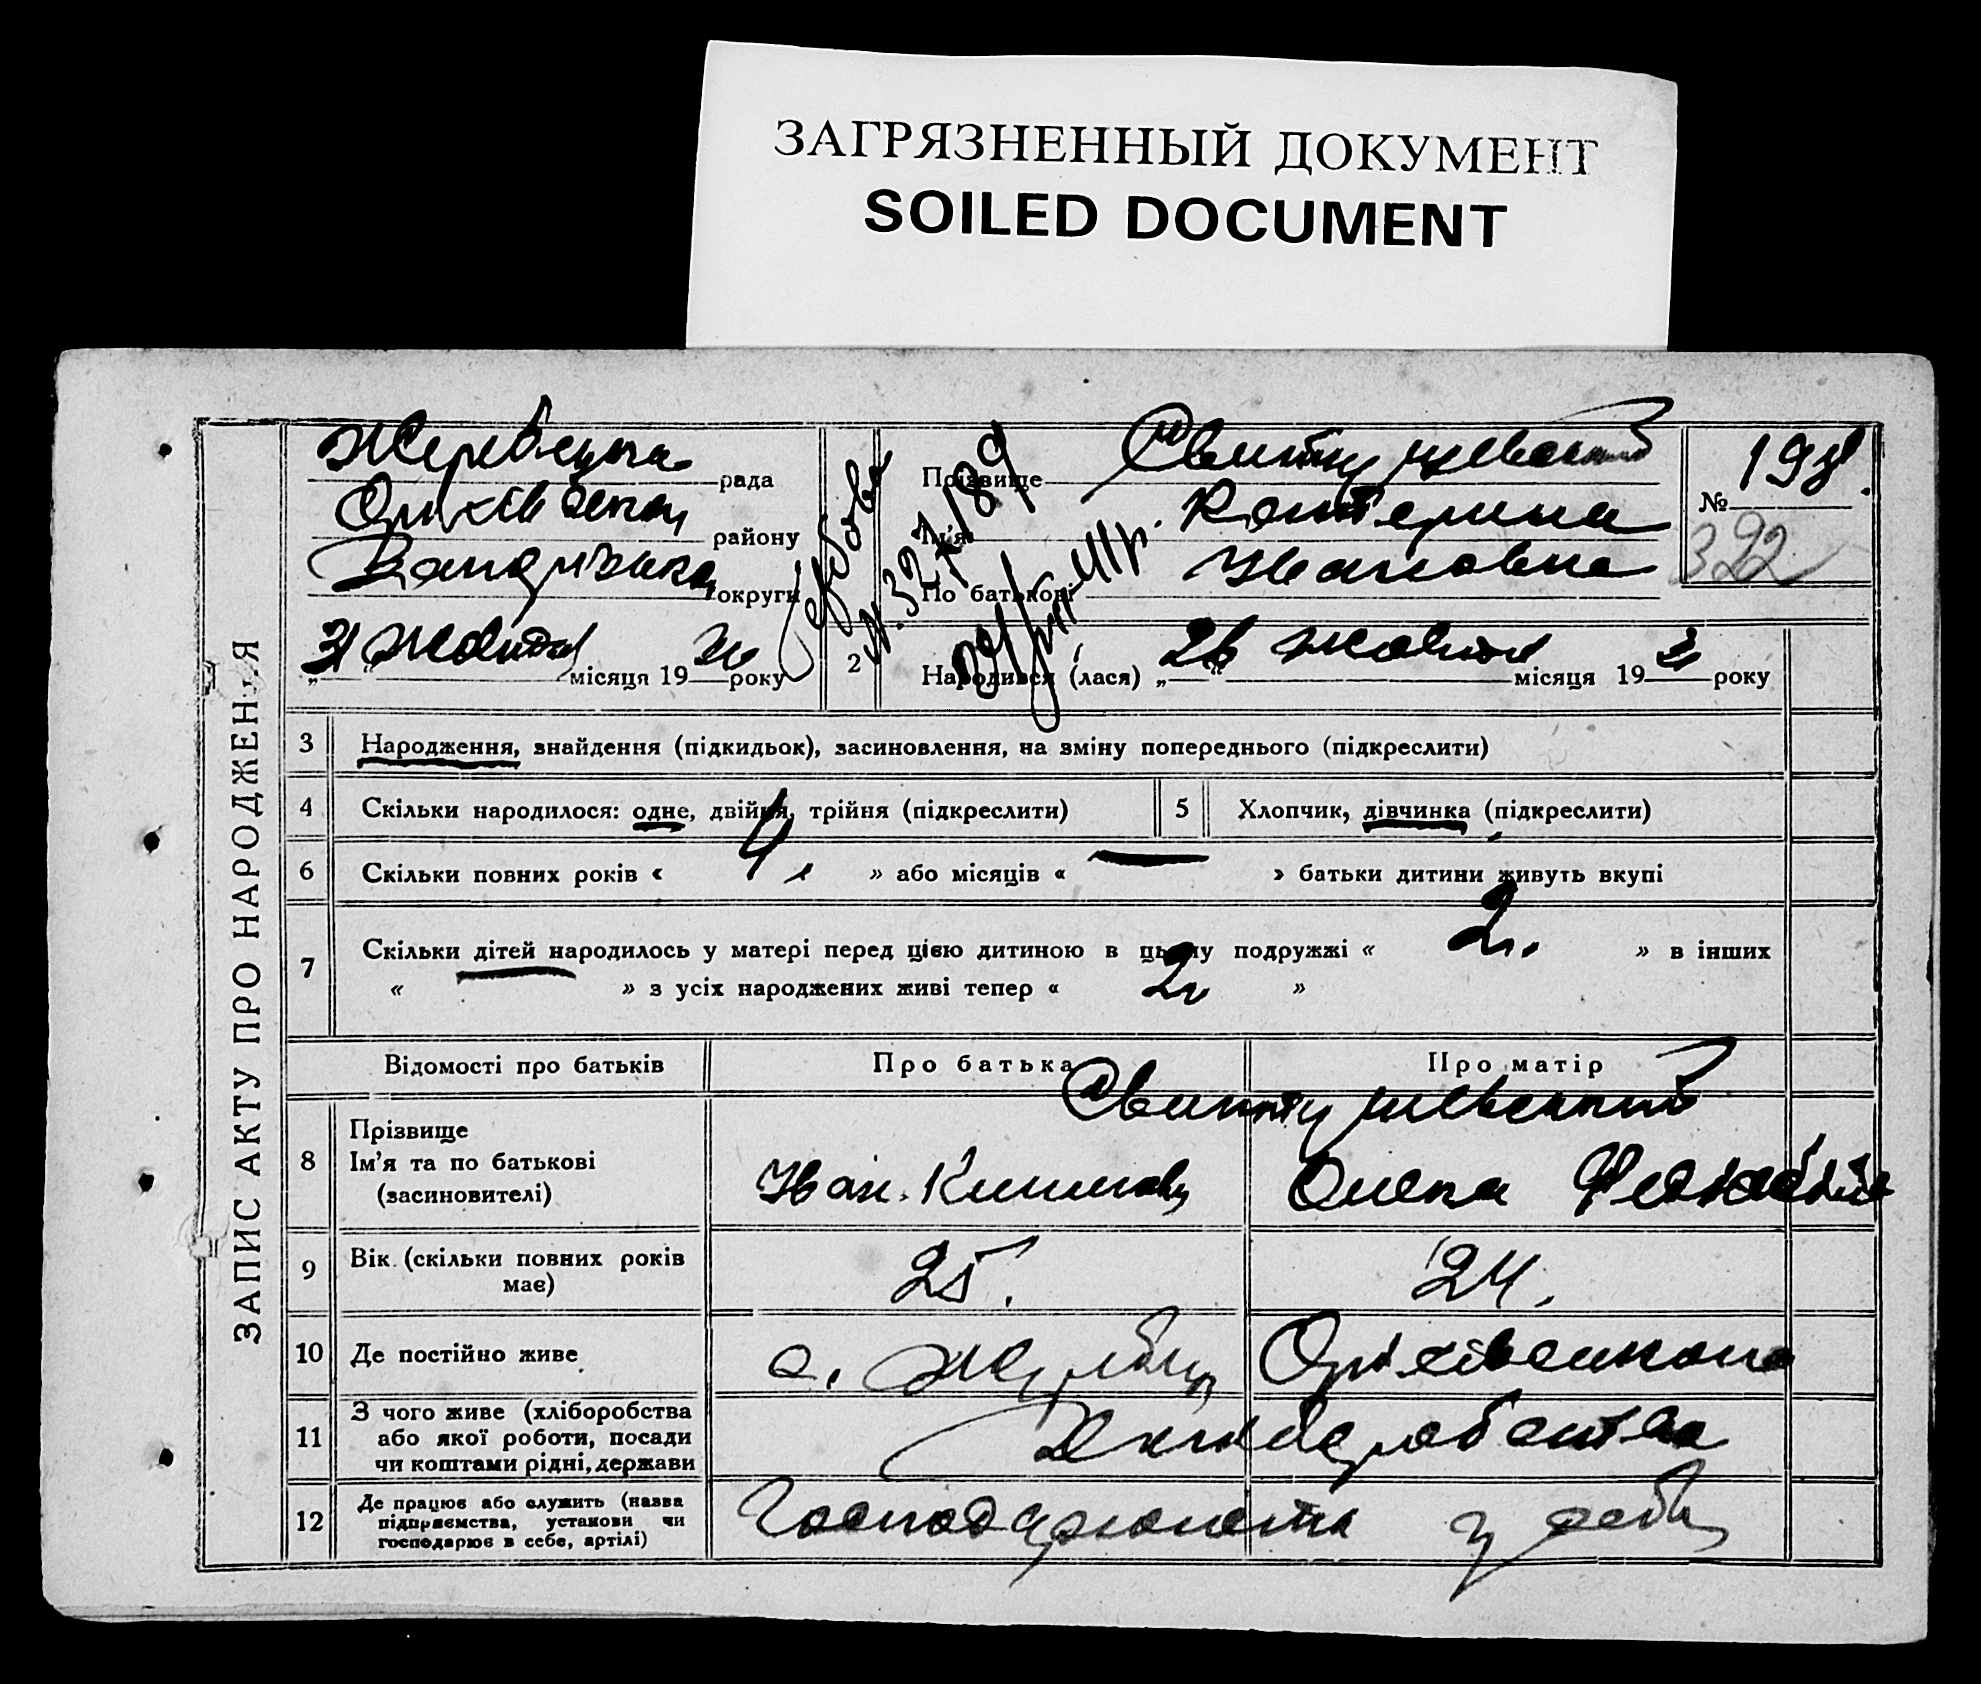 ЗАГРЯЗНЕННЫЙ ДОКУМЕНТ
SOILED DOCUMENT
ЗАПИС АКТУ ПРО НАРОДЖЕННЯ
Жеребецька рада
Оріхівськ району
Запорізька округи
31 Жовтня місяця 19 року
2
Прізвище
Ім'я Катерина
По батькові Ивановна
Народився (лася) „26“ жовтня місяця 19 року
№ 198.
392
3 Народження, знайдення (підкидьок), засиновлення, на зміну попереднього (підкреслити)
4 Скільки народилося: одне, двійня, трійня (підкреслити)
5 Хлопчик, дівчинка (підкреслити)
6 Скільки повних років « 4 » або місяців « — » батьки дитини живуть вкупі
7 Скільки дітей народилось у матері перед цією дитиною в цьому подружжі « 2. » в інших
« » з усіх народжених живі тепер « 2 »
Відомості про батьків Про батька Про матір
8 Прізвище
Ім'я та по батькові Иван Олена
(засиновителі)
9 Вік (скільки повних років має) 25. 24.
10 Де постійно живе с. Жеребец Оріхівського
11 З чого живе (хліборобства або якої роботи, посади чи коштами рідні, держави Хлиборобства
12 Де працює або служить (назва підприємства, установи чи господарює в себе, артілі) Господарюють у себе